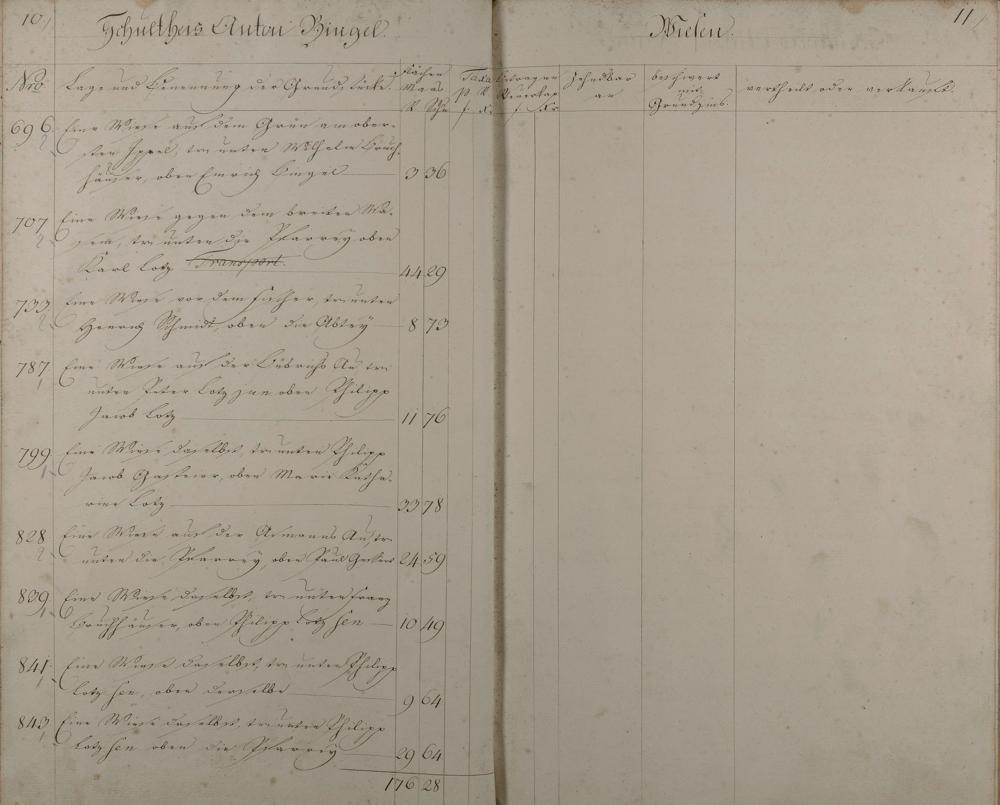 10.
Schultheis Anton Bingel
Wiesen
11
Nro
Lage und Benennung der Grundstücke.
Flächen
Maas
R. Sch.
Taxa
p. R.
f. x.
Betrag an
Steuerkap.
f. Kr.
Zehndbar
an
beschwert
mit
Grundzins.
vertheilt oder verkauft.
696
2
Eine Wiese auf dem Grün am ober-
sten, unten Wilhelm Bruch-
häuser, oben Emrich Bingel
3 36
707
2
Eine Wiese gegen dem breiten Wa-
sem, unten die Pfarrey oben
Karl Lotz Transport.
44 29
733
2
Eine Wiese vor dem, unten
Henrich Schmidt, oben die Abtey
8 73
787
1
Eine Wiese auf der Au
unten Peter Lotz jun oben Philipp
Jacob Lotz
11 76
799
1
Eine Wiese daselbst, unten Philipp
Jacob, oben Marie Katha-
rine Lotz
33 78
828
2
Eine Wiese auf der Asmanns Au
unten die Pfarrey, oben Paul
24 59
839
1
Eine Wiese daselbst, unten Franz
Bruchhäuser, oben Philipp Lotz sen
10 49
841
1
Eine Wiese daselbst, unten Philipp
Lotz sen, oben derselbe
9 64
843
1
Eine Wiese daselbst, unten Philipp
Lotz sen oben die Pfarrey
29 64
176 28